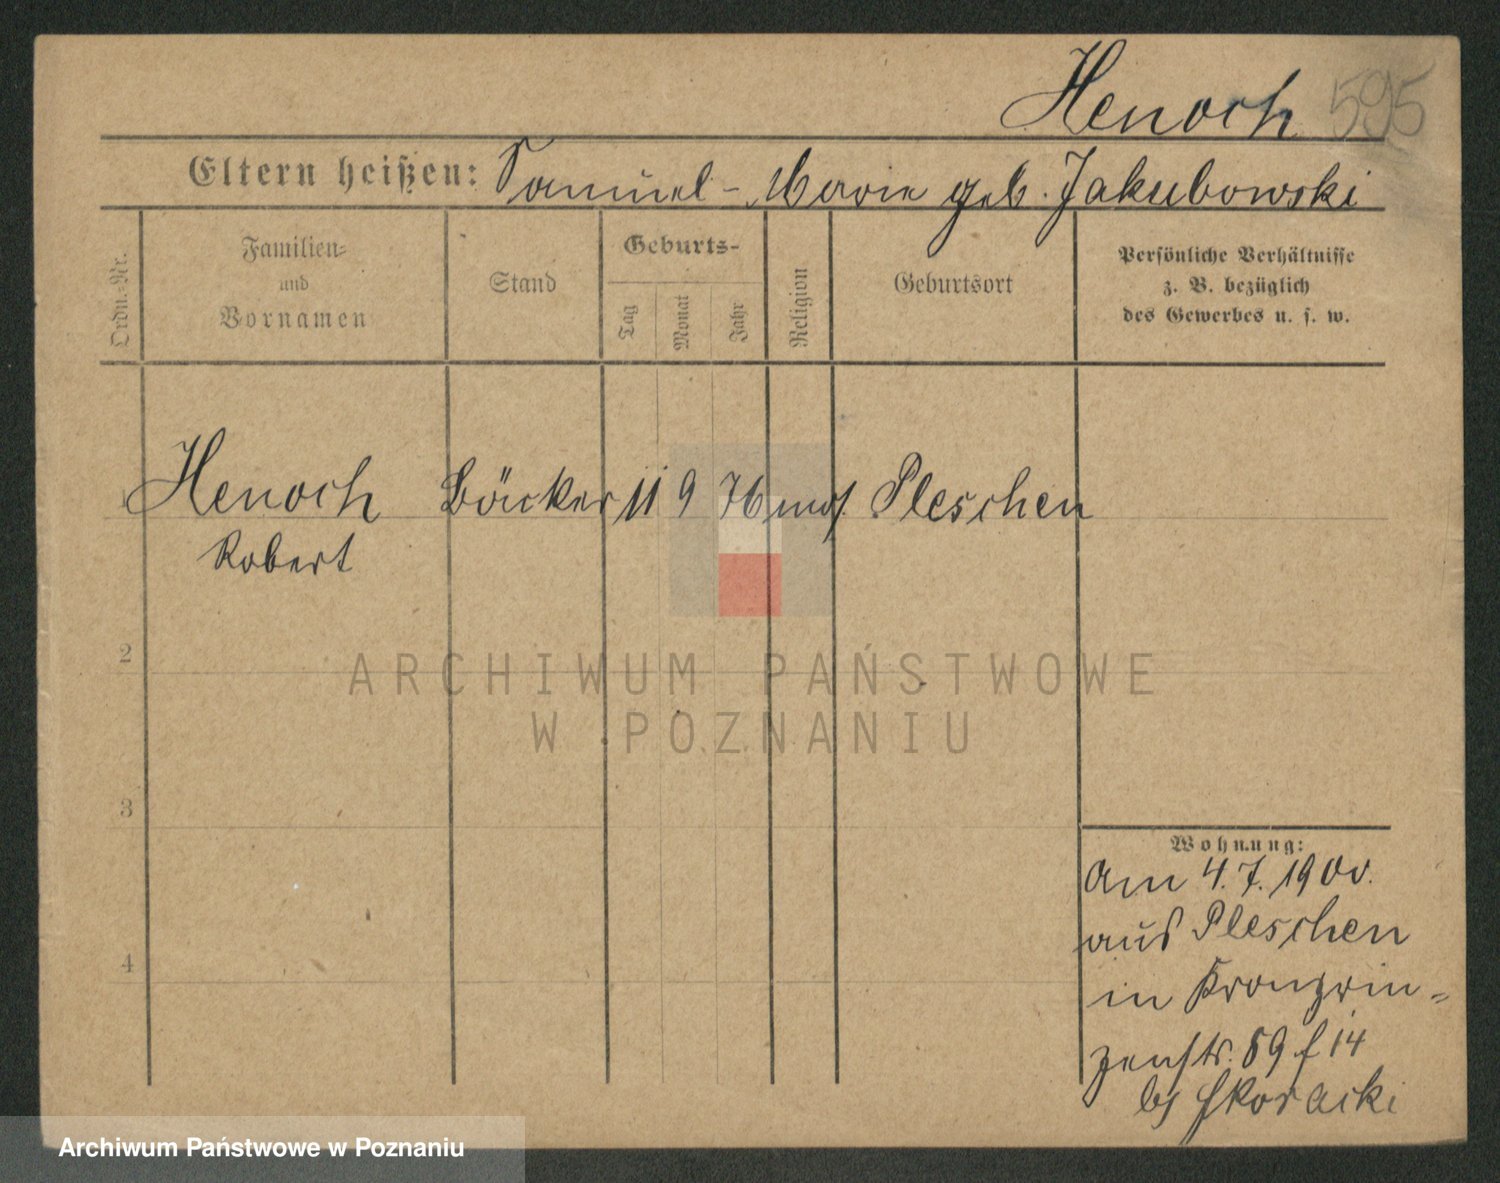 Henoch 595
Eltern heißen: Samuel - Marie geb. Jakubowski
Ordn.-Nr.
Familien-
und
Vornamen
Stand
Geburts-
Tag
Monat
Jahr
Religion
Geburtsort
Persönliche Verhältnisse
z. B. bezüglich
des Gewerbes u. s. w.
Henoch Bäcker 11 9 76 mos. Pleschen
Robert
2
3
4
Wohnung:
Am 4.7.1900.
aus Pleschen
in Kronprin=
zenstr. 89
bei Skoracki
ARCHIWUM PAŃSTWOWE
W POZNANIU
Archiwum Państwowe w Poznaniu